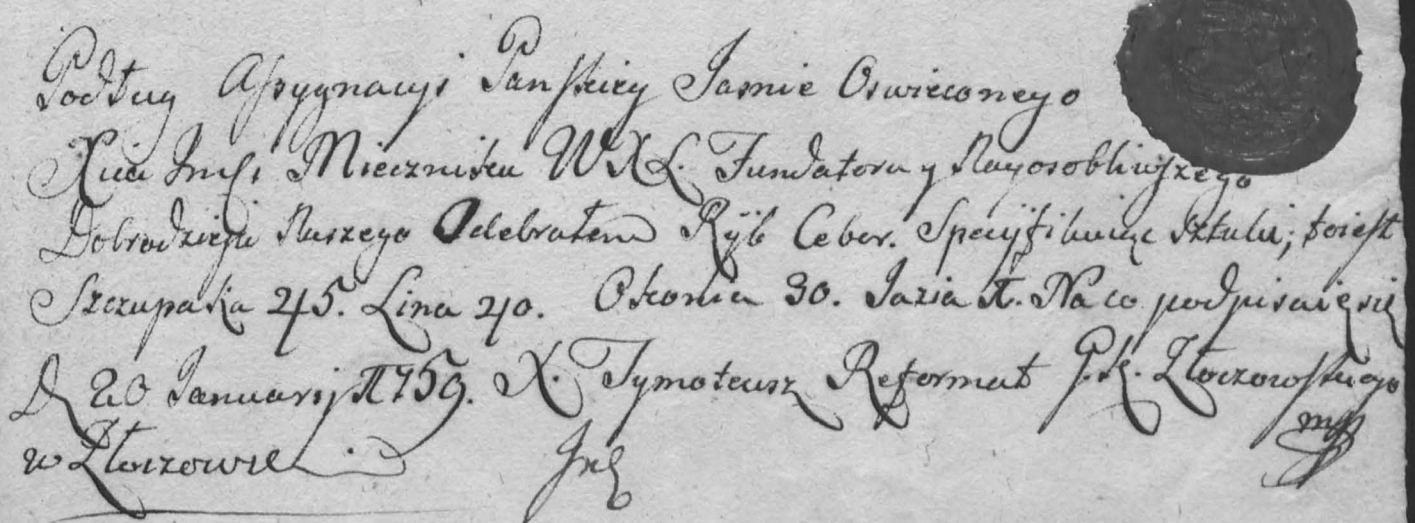 Podług Assygnacyi Panskiey Jasnie Oswieconego
Xcia Jmci Miecznika WXL. Fundatora y Nayosobliwszego
Dobrodzieja Naszego Odebrałem Ryb Ceber. Specyfikuiąc sztuki; to iest
Szczupaka 45. Lina 40. Okonia 30. Jazia Na co podpisuię się
D 20 Januarij 1759. X. Tymoteusz Reformat Złoczowskiego
mp
w Złoczowie